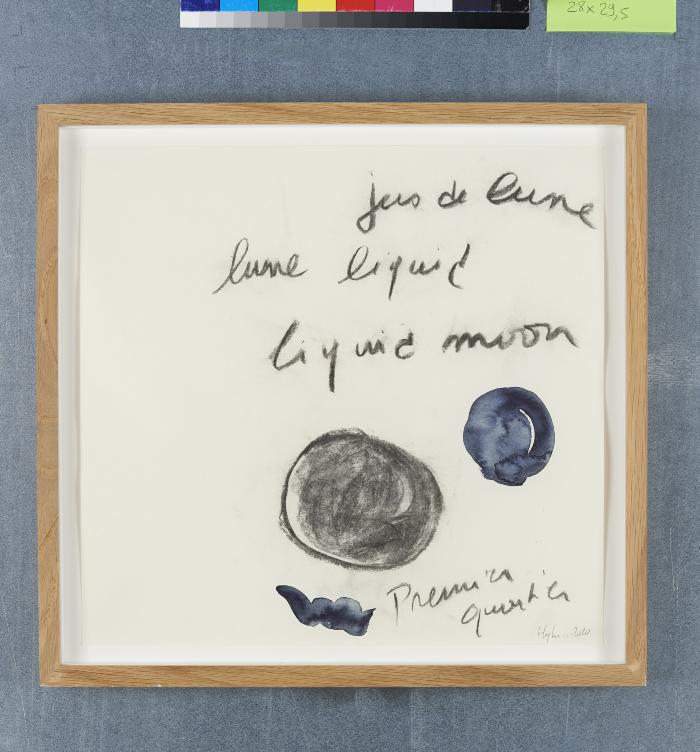 28 x 29,5
jus de lune
lune liquid
liquid moon
Premier
quartier
2020